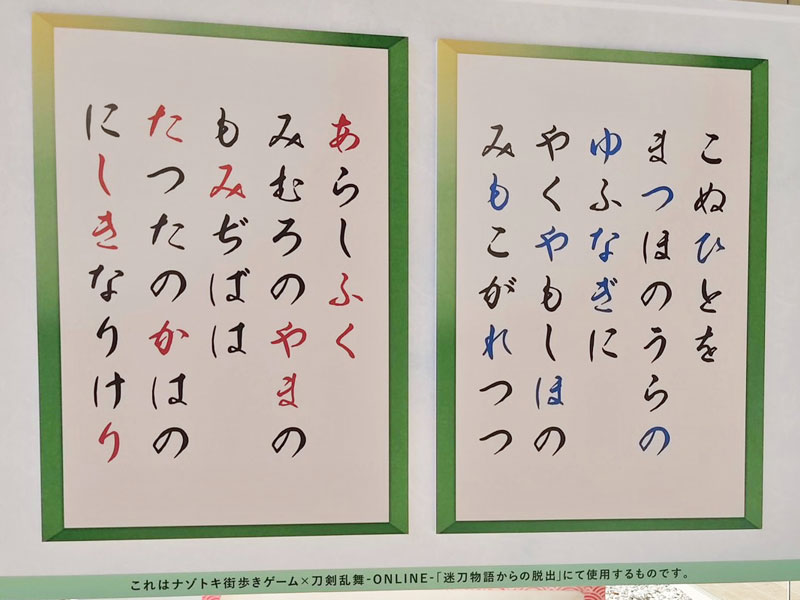 こぬひとを
まつほのうらの
ゆふなぎに
やくやもしほの
みもこがれつつ
あらしふく
みむろのやまの
もみぢばは
たつたのかはの
にしきなりけり
これはナゾトキ街歩きゲーム×刀剣乱舞-ONLINE-「迷刀物語からの脱出」にて使用するものです。